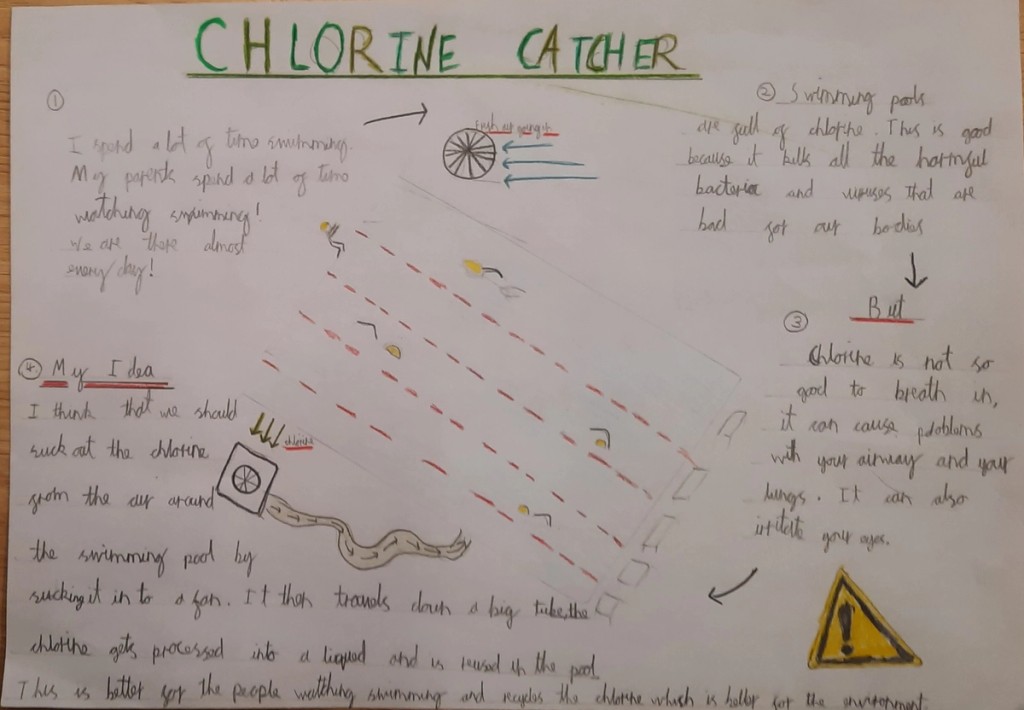 CHLORINE CATCHER
①
I spend a lot of time swimming.
My parents spend a lot of time
watching swimming!
We are there almost
every day!
Fresh air going in
② Swimming pools
are full of chlorine. This is good
because it kills all the harmful
bacteria and viruses that are
bad for our bodies
But
③
Chlorine is not so
good to breath in,
it can cause problems
with your airway and your
lungs. It can also
irritate your eyes.
④ My Idea
I think that we should
suck out the chlorine
from the air around
the swimming pool by
sucking it in to a fan. It then travels down a big tube, the
chlorine gets processed into a liquid and is reused in the pool
This is better for the people watching swimming and recycles the chlorine which is better for the environment.
chlorine
!